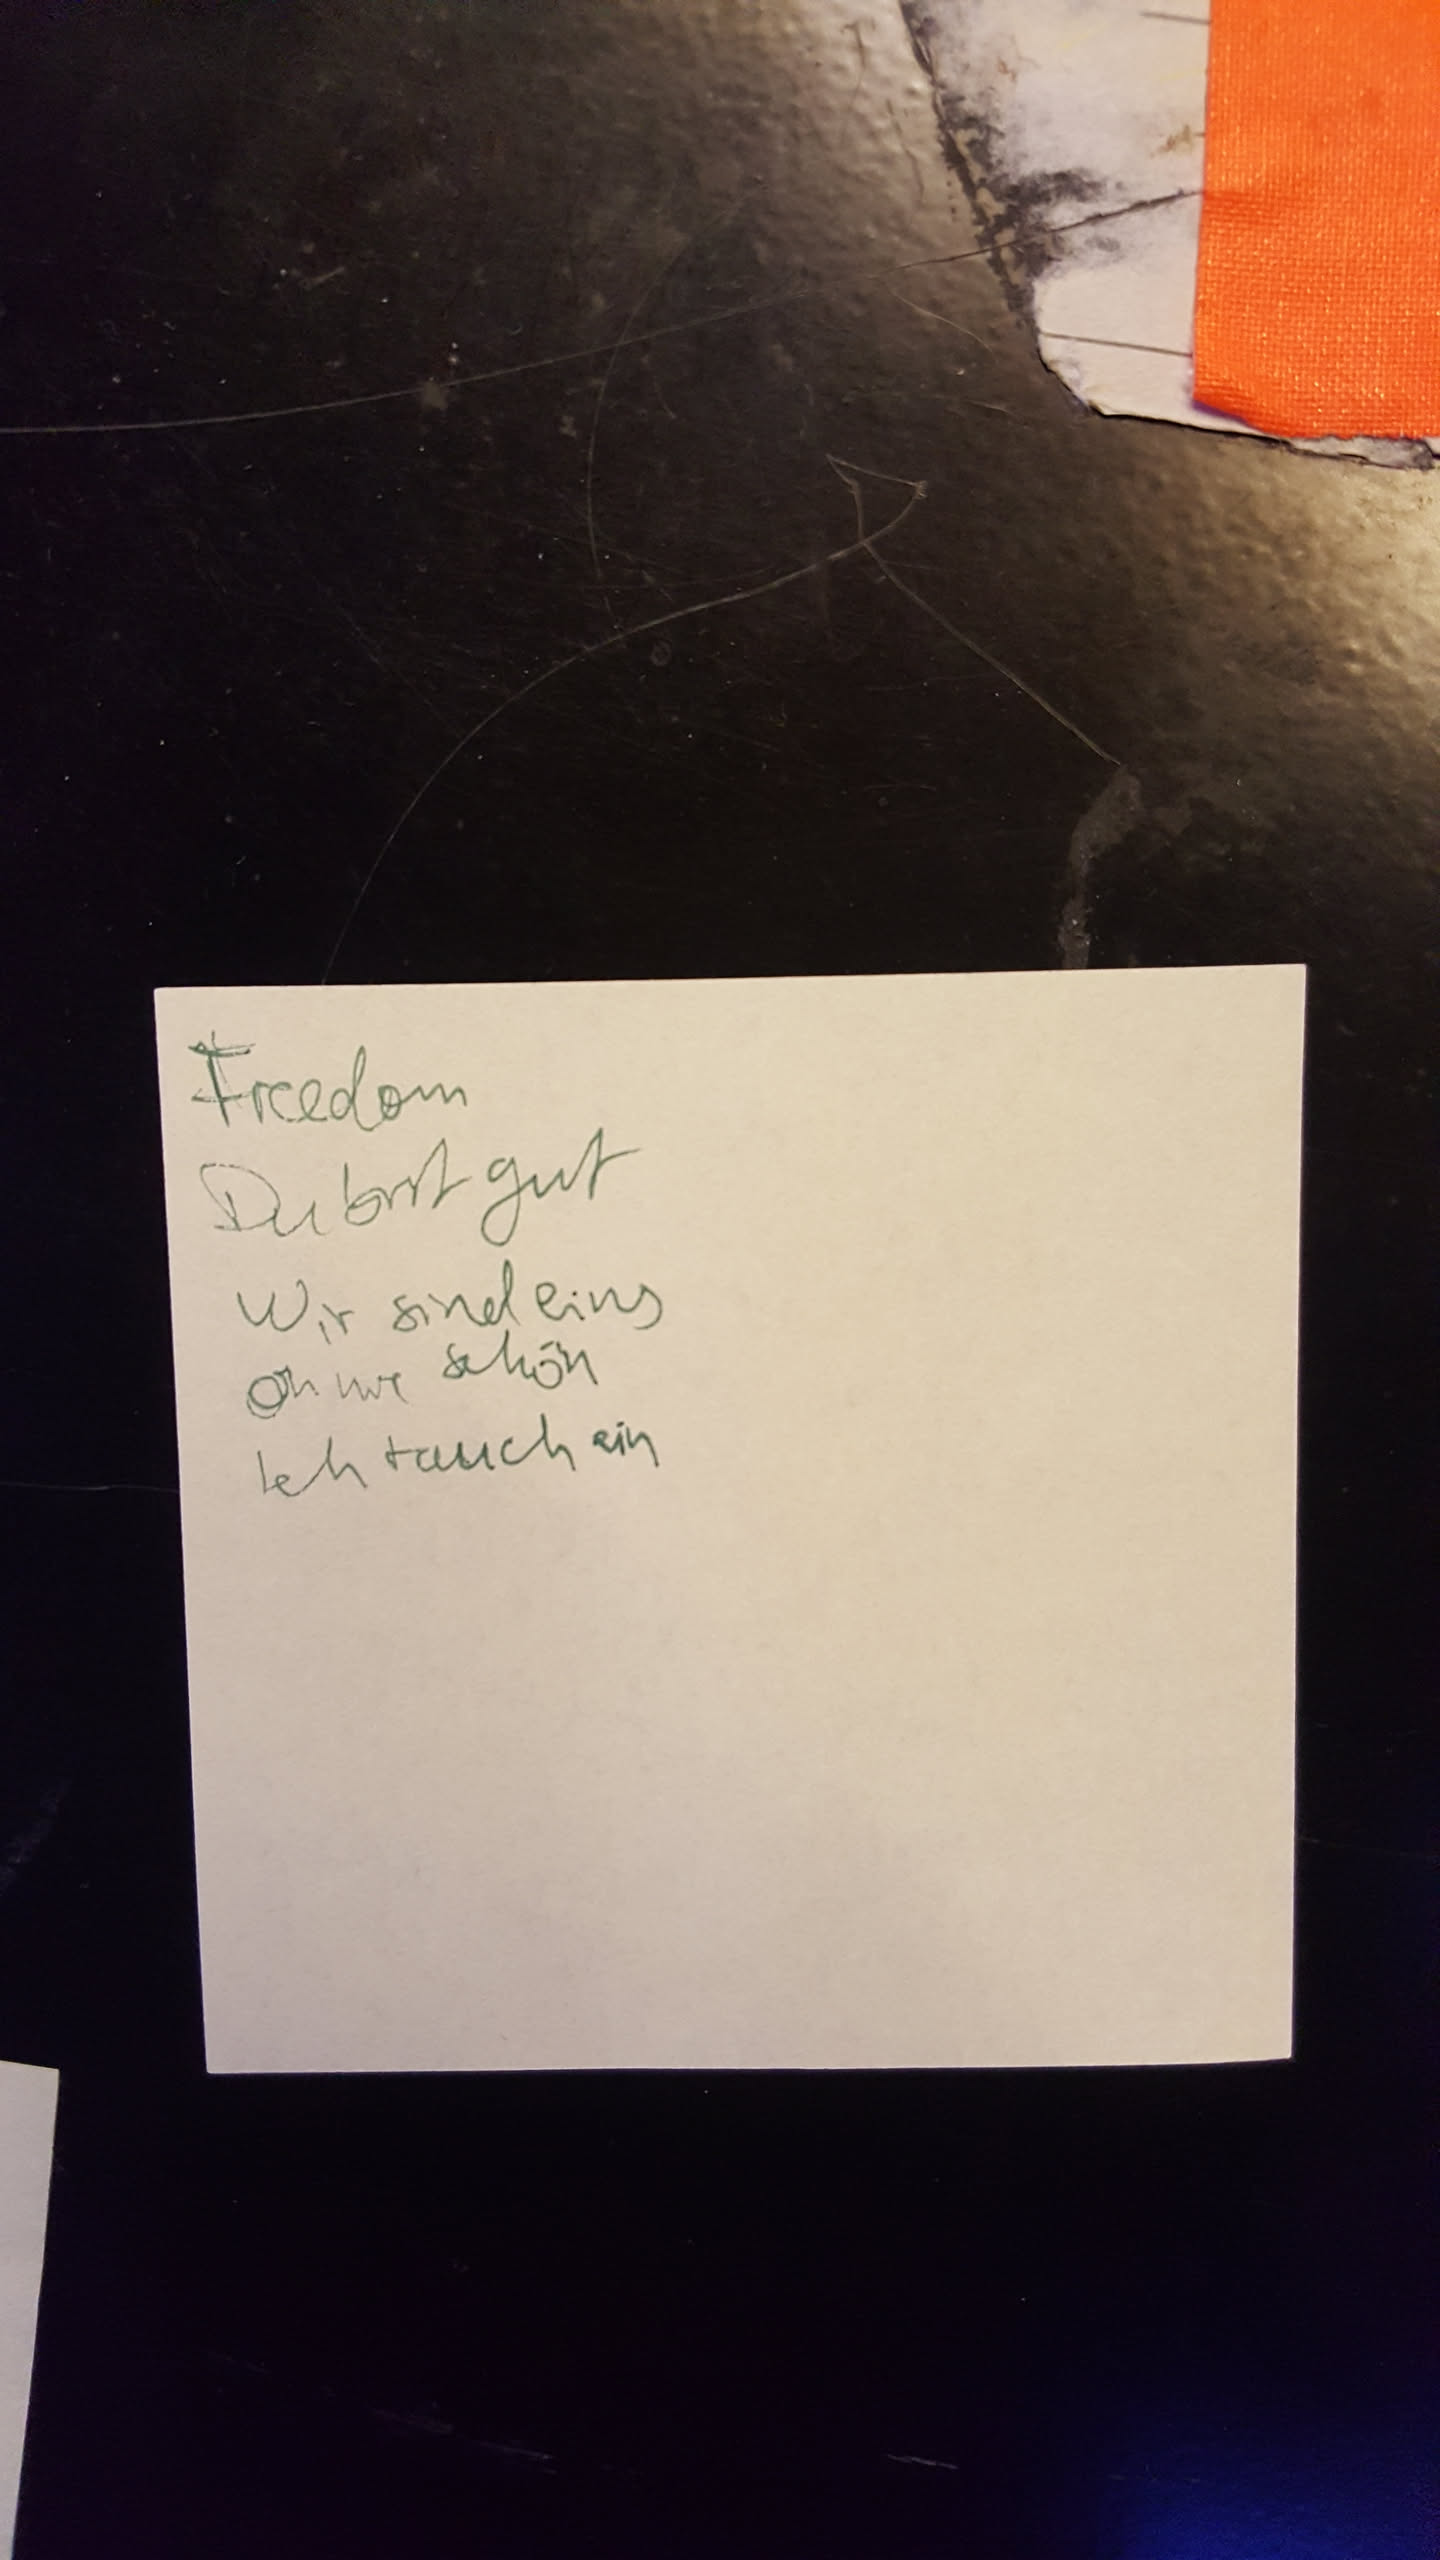 Freedom
Du bist gut
Wir sind eins
oh wie schön
Ich tauch ein